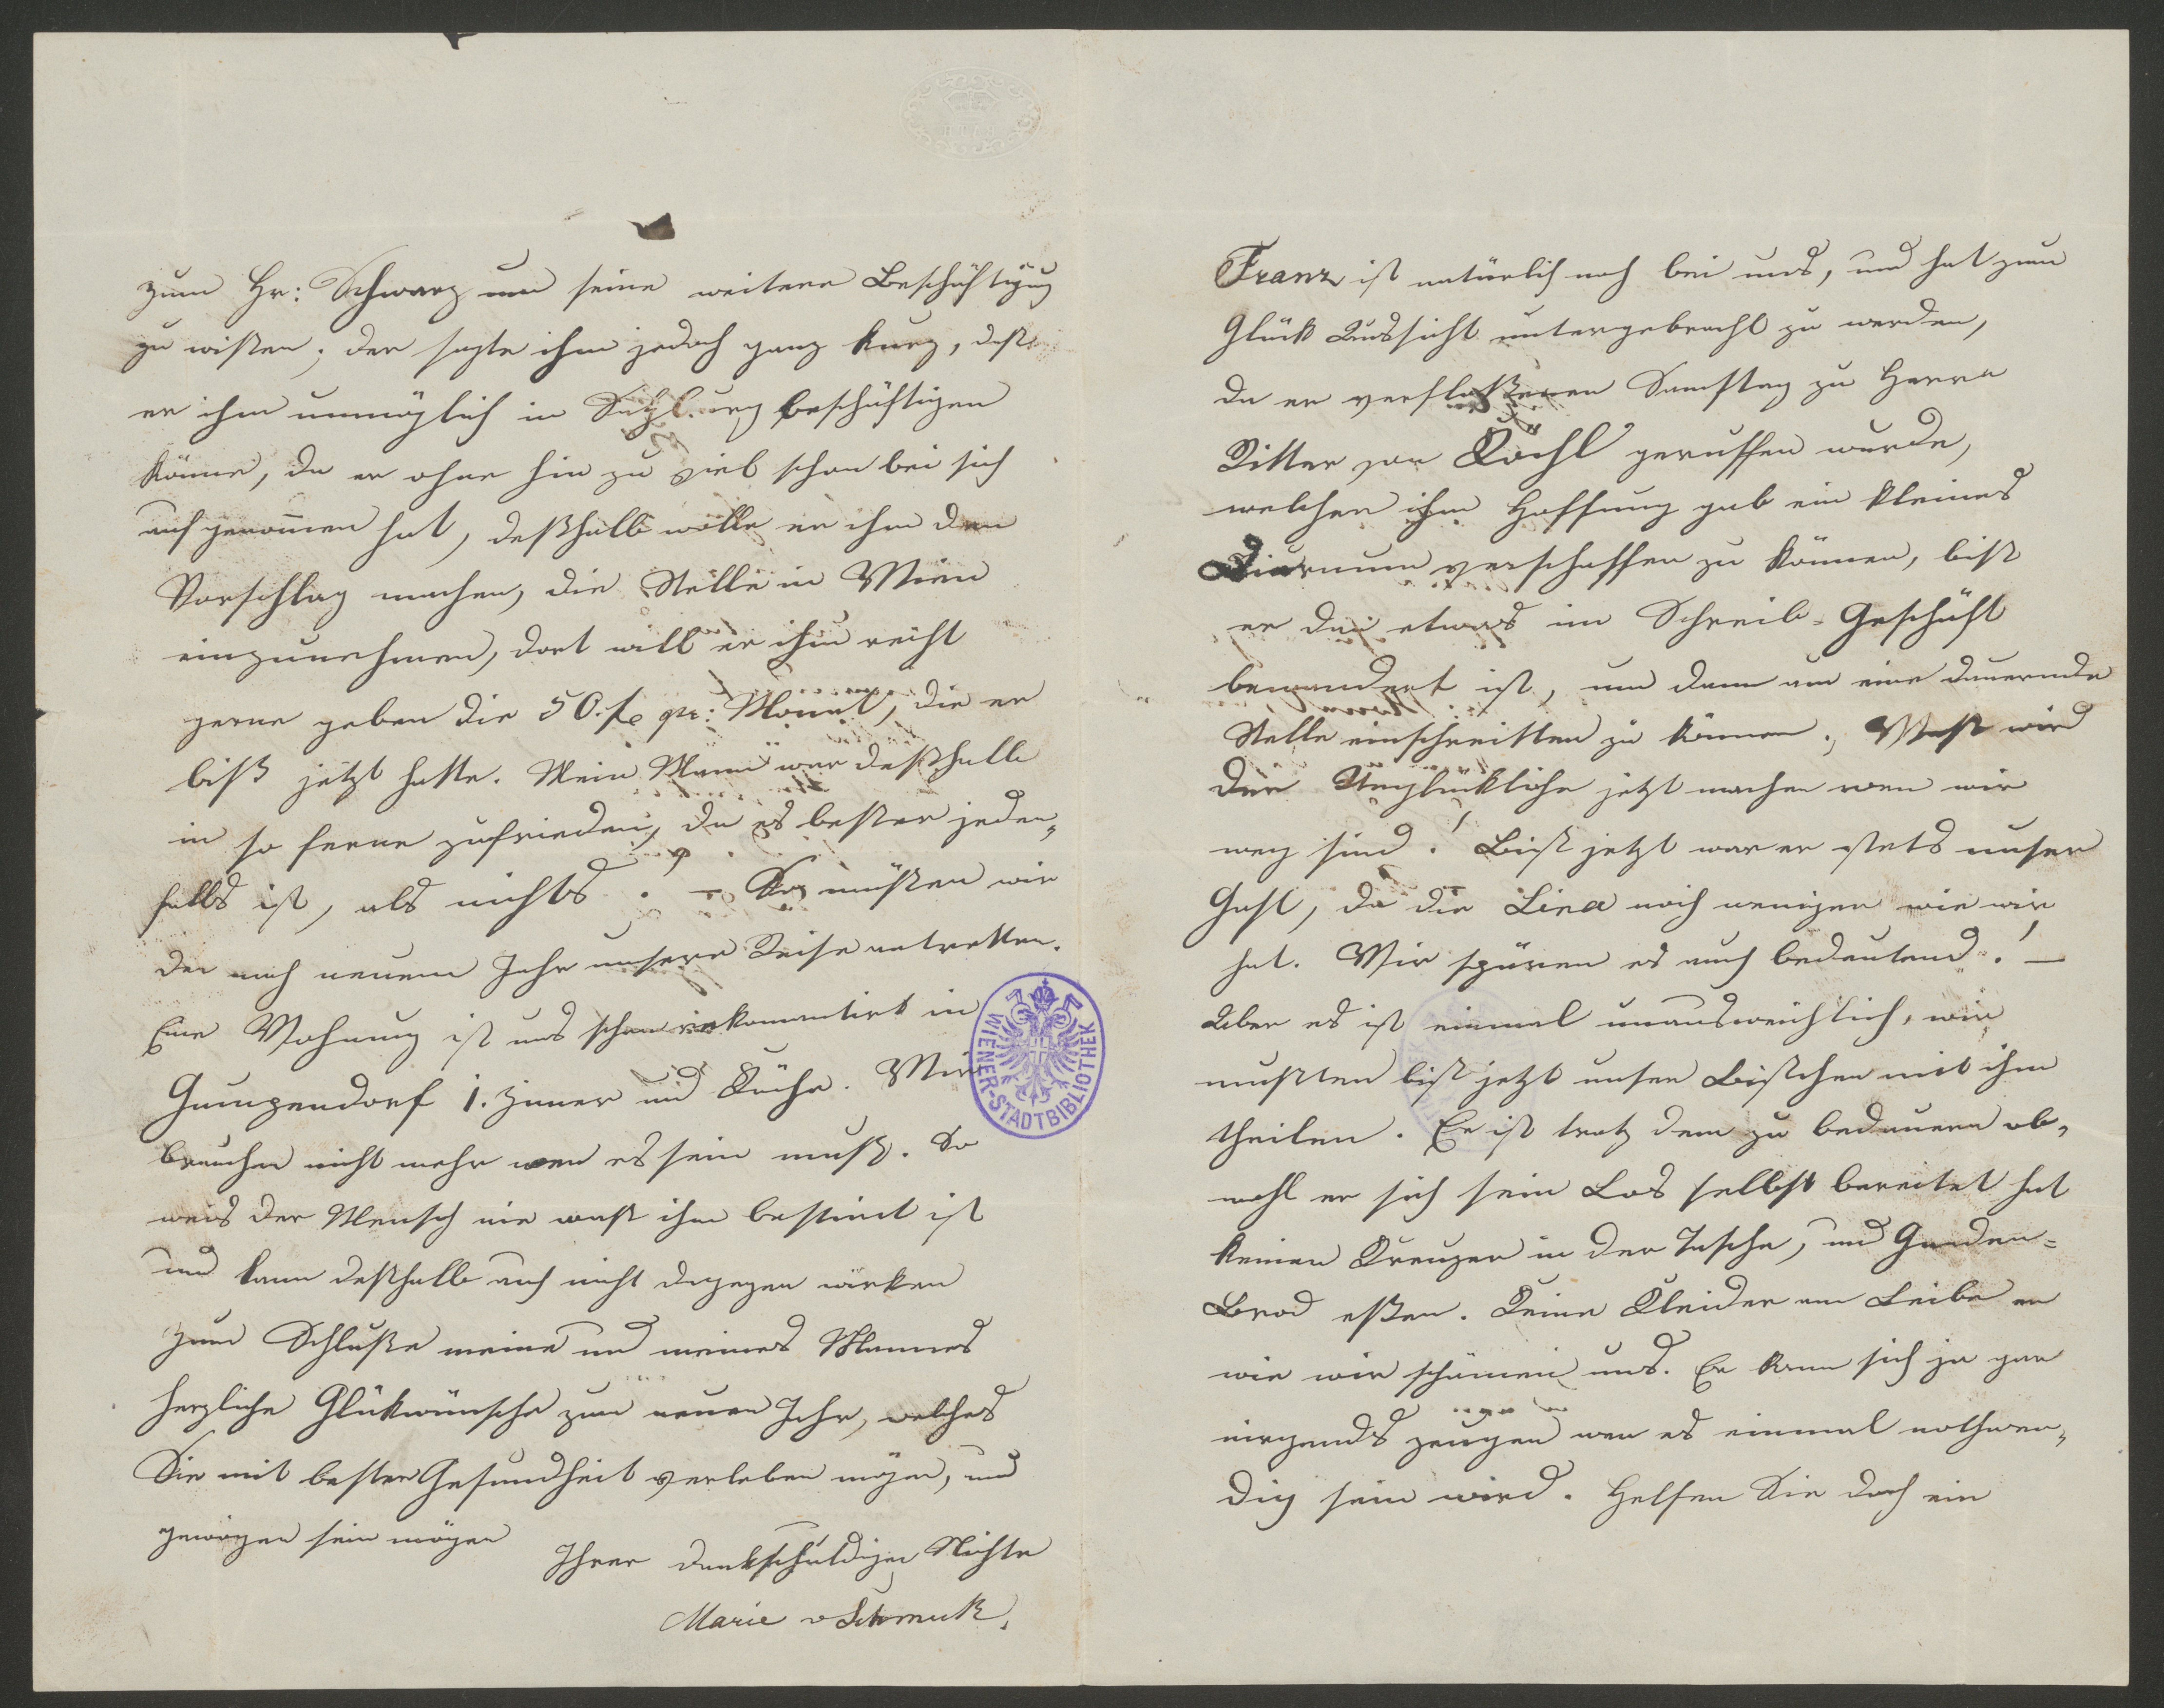 zum Hr: Schwarz um seine weitere Beschäftigung
zu wißen; der sagte ihm jedoch ganz kurz, daß
er ihm unmöglich in Salzburg beschäftigen
könne, da er ohne hin zu viel schon bei sich
aufgenom̄en hat, deßhalb wolle er ihm den
Vorschlag machen, die Stelle in Wien
einzunehmen, dort will er ihm recht
gerne geben die 50. f. pr: Monat, die er
biß jetzt hatte. Mein Mann war deßhalb
in so ferne zufrieden, da es beßer jeden„
falls ist, als nichts. – So müßen wir
den nach neuem Jahr unsere Reise antretten.
Eine Wohnung ist uns schon rekomantirt in
Gumpendorf 1. Zimer und Küche. Wir
brauchen nicht mehr wen es sein muß. So
weis der Mensch nie waß ihm bestimt ist
und kann deßhalb auch nicht dagegen wirken
Zum Schluße meine und meines Mannes
herzliche Glükwünsche zum neuen Jahr, welches
Sie mit bester Gesundheit verleben mögen, und
gewogen sein mögen
Ihrer dankschuldigen Nichte
Marie v Schmuk.
WIENER-STADTBIBLIOTHEK
Franz ist natürlich noch bei uns, und hat zum
Glück Aussicht untergebracht zu werden,
da er verfloßenen Samstag zu Herrn
Ritter von Köchl geruffen wurde,
welcher ihm Hoffnung gab ein kleines
Diurnum verschaffen zu können, biß
er den etwas im Schreib-Geschäft
bewandert ist, um dann um eine dauernde
Stelle einschreitten zu können. Waß wird
der Unglückliche jetzt machen wen wir
weg sind! Biß jetzt war er stets unser
Gast, da die Lina noch weniger wie wir
hat. Wir spüren es auch bedeutend! –
Aber es ist einmal unausweichlich, wir
mußten biß jetzt unser Bischen mit ihm
theilen. Er ist trotz dem zu bedauern ob„
wohl er sich sein Los selbst bereitet hat
keinen Kreuzer in der Tasche, und Gnaden=
Brod eßen. Keine Kleider am Leibe er
wie wir schämen uns. Er kann sich ja gar
nirgends zeugen wen es einmal nothwen„
dig sein wird. Helfen Sie doch ein